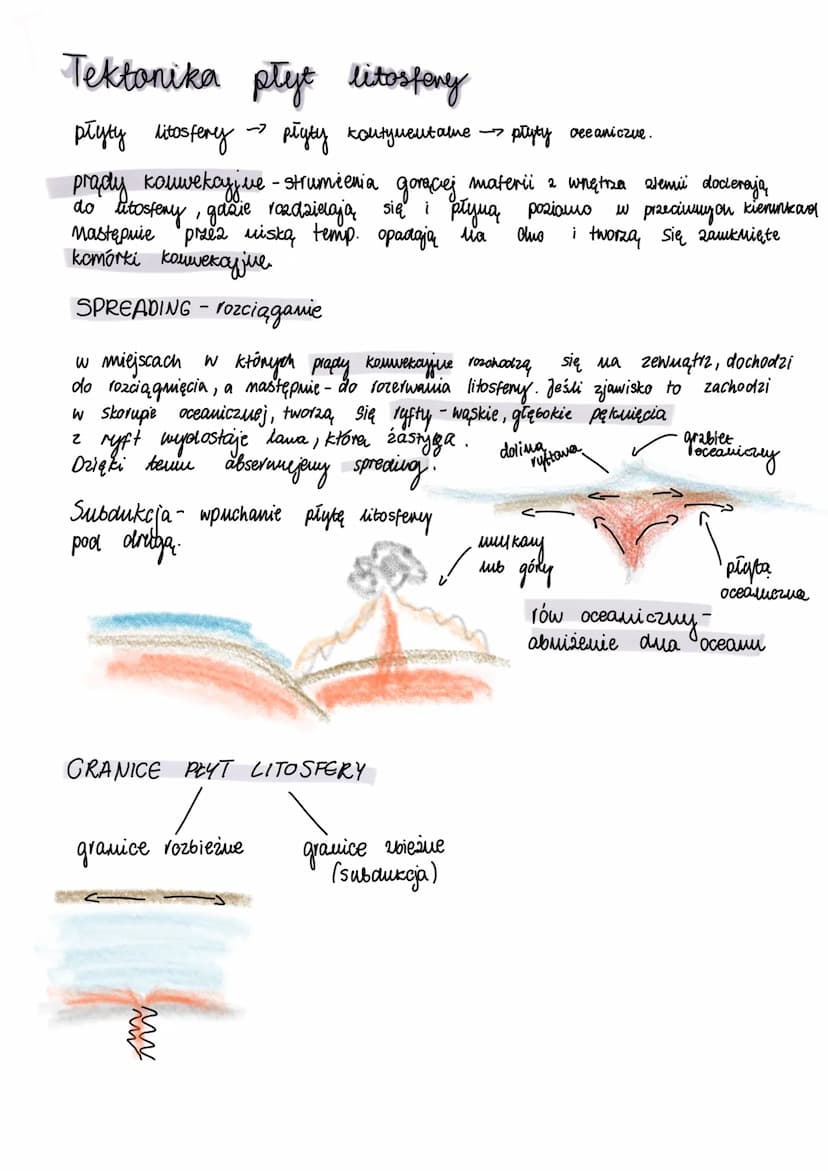 Tektonika płyt litosfery
płyty litosfery → płyty kontynentalne → płyty oceaniczne.
prądy konwekcyjne - strumienia gorącej materii z wnętrza ziemii docierają
do litosfery, gdzie rozdzielają się i płyną poziomo w przeciwnych kierunkach
Następnie przez niską temp. opadają na dno i tworzą się zamknięte
komórki konwekcyjne.
SPREADING - rozciąganie
w miejscach w których prądy konwekcyjne rozchodzą się na zewnątrz, dochodzi
do rozciągnięcia, a następnie - do rozerwania litosfery. Jeśli zjawisko to zachodzi
w skorupie oceanicznej, tworzą się ryfty - wąskie, głębokie pęknięcia
z ryft wydostaje lawa, która zastyga.
Dzięki temu obserwujemy spreding.
dolina
ryftowa
grzbiet
oceaniczny
Subdukcja - wpychanie płytę litosfery
pod drugą.
wulkany
lub góry
płyta
oceaniczna
rów oceaniczny -
obniżenie dna oceanu
GRANICE PŁYT LITOSFERY
granice rozbieżne
granice zbieżne
(subdukcja)